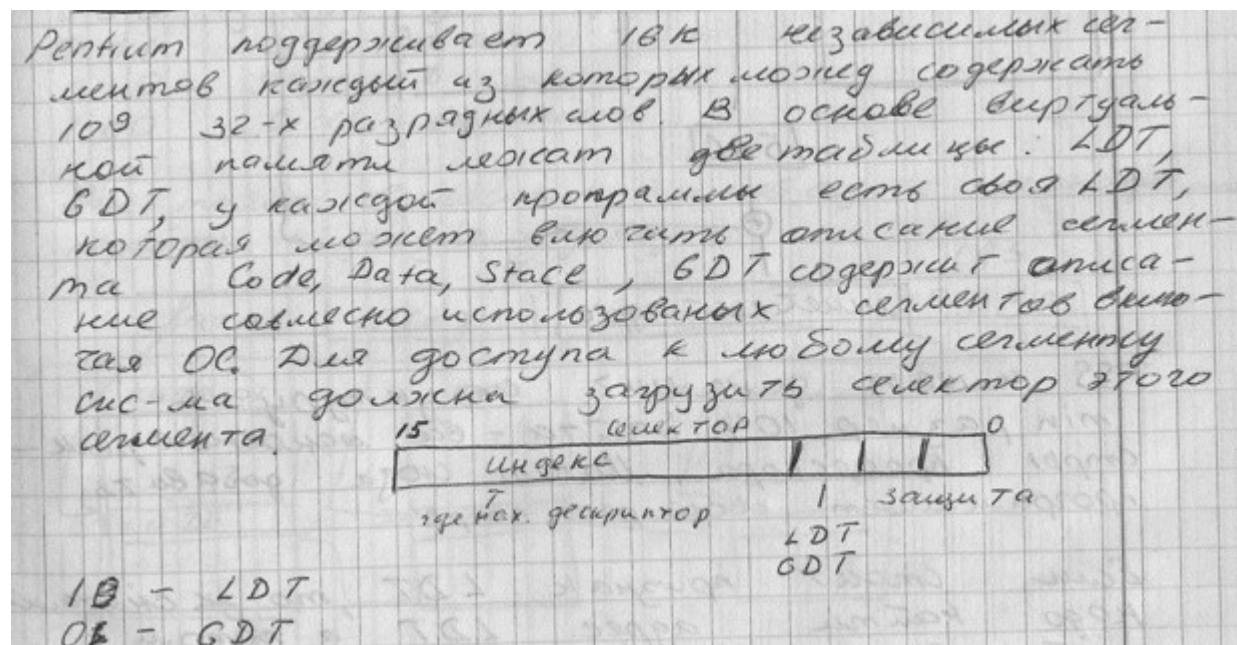 Pentium поддерживает 16К независимых сег-
ментов каждый из которыхможед содержать
10⁹ 32-х разрядных слов. В основе виртуаль-
ной памяти лежат две таблицы: LDT,
GDT, у каждой программы есть своя LDT,
которая может влючить описание сегмен-
та Code, Data, Stace, GDT содержит описа-
ние совмесно использованых сегментов вклю-
чая ОС. Для доступа к любому сегменту
сис-ма должна загрузить селектор этого
сегмента.
15 селектор 0
индекс
где нах. дескриптор защита
LDT
GDT
1 - LDT
0 - GDT